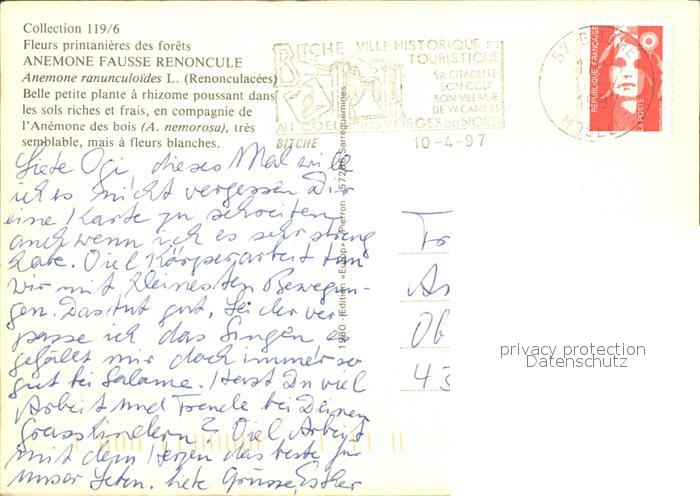 Collection 119/6
Fleurs printanières des forêts
ANEMONE FAUSSE RENONCULE
Anemone ranunculoïdes L. (Renonculacées)
Belle petite plante à rhizome poussant dans
les sols riches et frais, en compagnie de
l'Anémone des bois (A. nemorosa), très
semblable, mais à fleurs blanches.
BITCHE VILLE HISTORIQUE ET
TOURISTIQUE
SA CITADELLE
SON GOLF
SON VILLAGE
DE VACANCES
AU COEUR DES VOSGES DU NORD
BITCHE
10-4-97
57 BITCHE
MOSELLE
RÉPUBLIQUE FRANÇAISE
LA POSTE
Liebe Ogi, dieses Mal will
ich es nicht vergessen Dir
eine Karte zu schreiben
auch wenn ich es sehr streng
habe. Viel Körperarbeit tun
wir mit kleinesten Bewegun-
gen. Das tut gut, bei der
passe ich das Singen es
gefällt mir doch immer so
gut bei Salome. Hast Du viel
Arbeit und Freude bei Deinen
Grosskindern? Viel Arbeit
mit dem Herzen das beste für
unser Leben. Liebe Grüsse, Esther
1980 Edition « Europ » Pierron 57206 Sarreguemines
Fr
As
Ob
43
privacy protection
Datenschutz